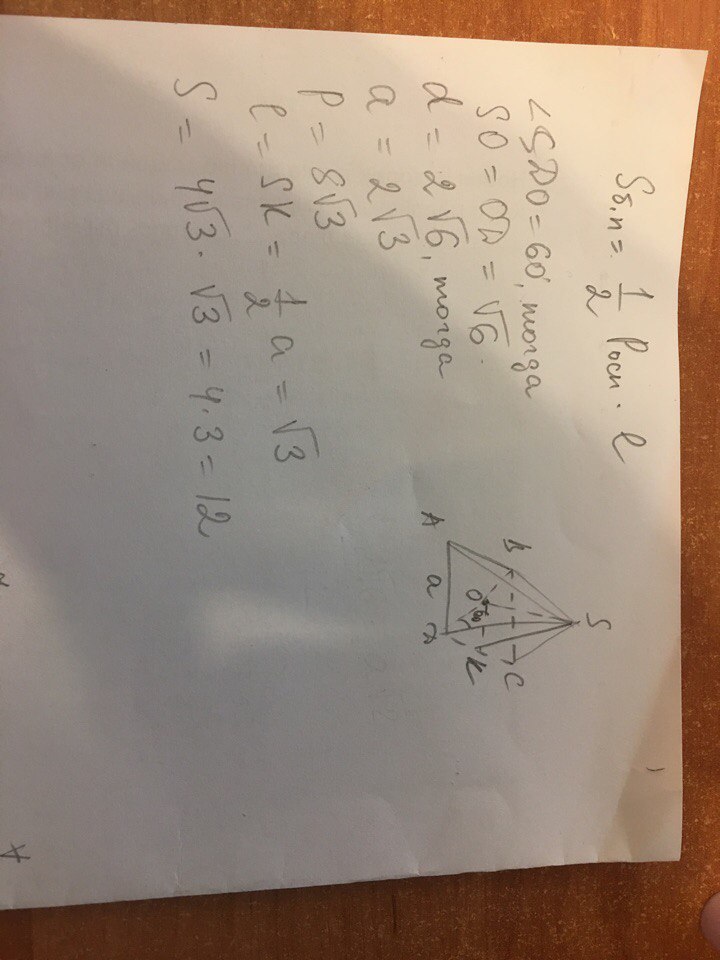 Sб.п = 1/2 Pосн · l
∠SDO = 60°, тогда
SO = OD = √6.
d = 2√6, тогда
a = 2√3
P = 8√3
l = SK = 1/2 a = √3
S = 4√3 · √3 = 4·3 = 12
S
B
C
O
60
K
A
a
D